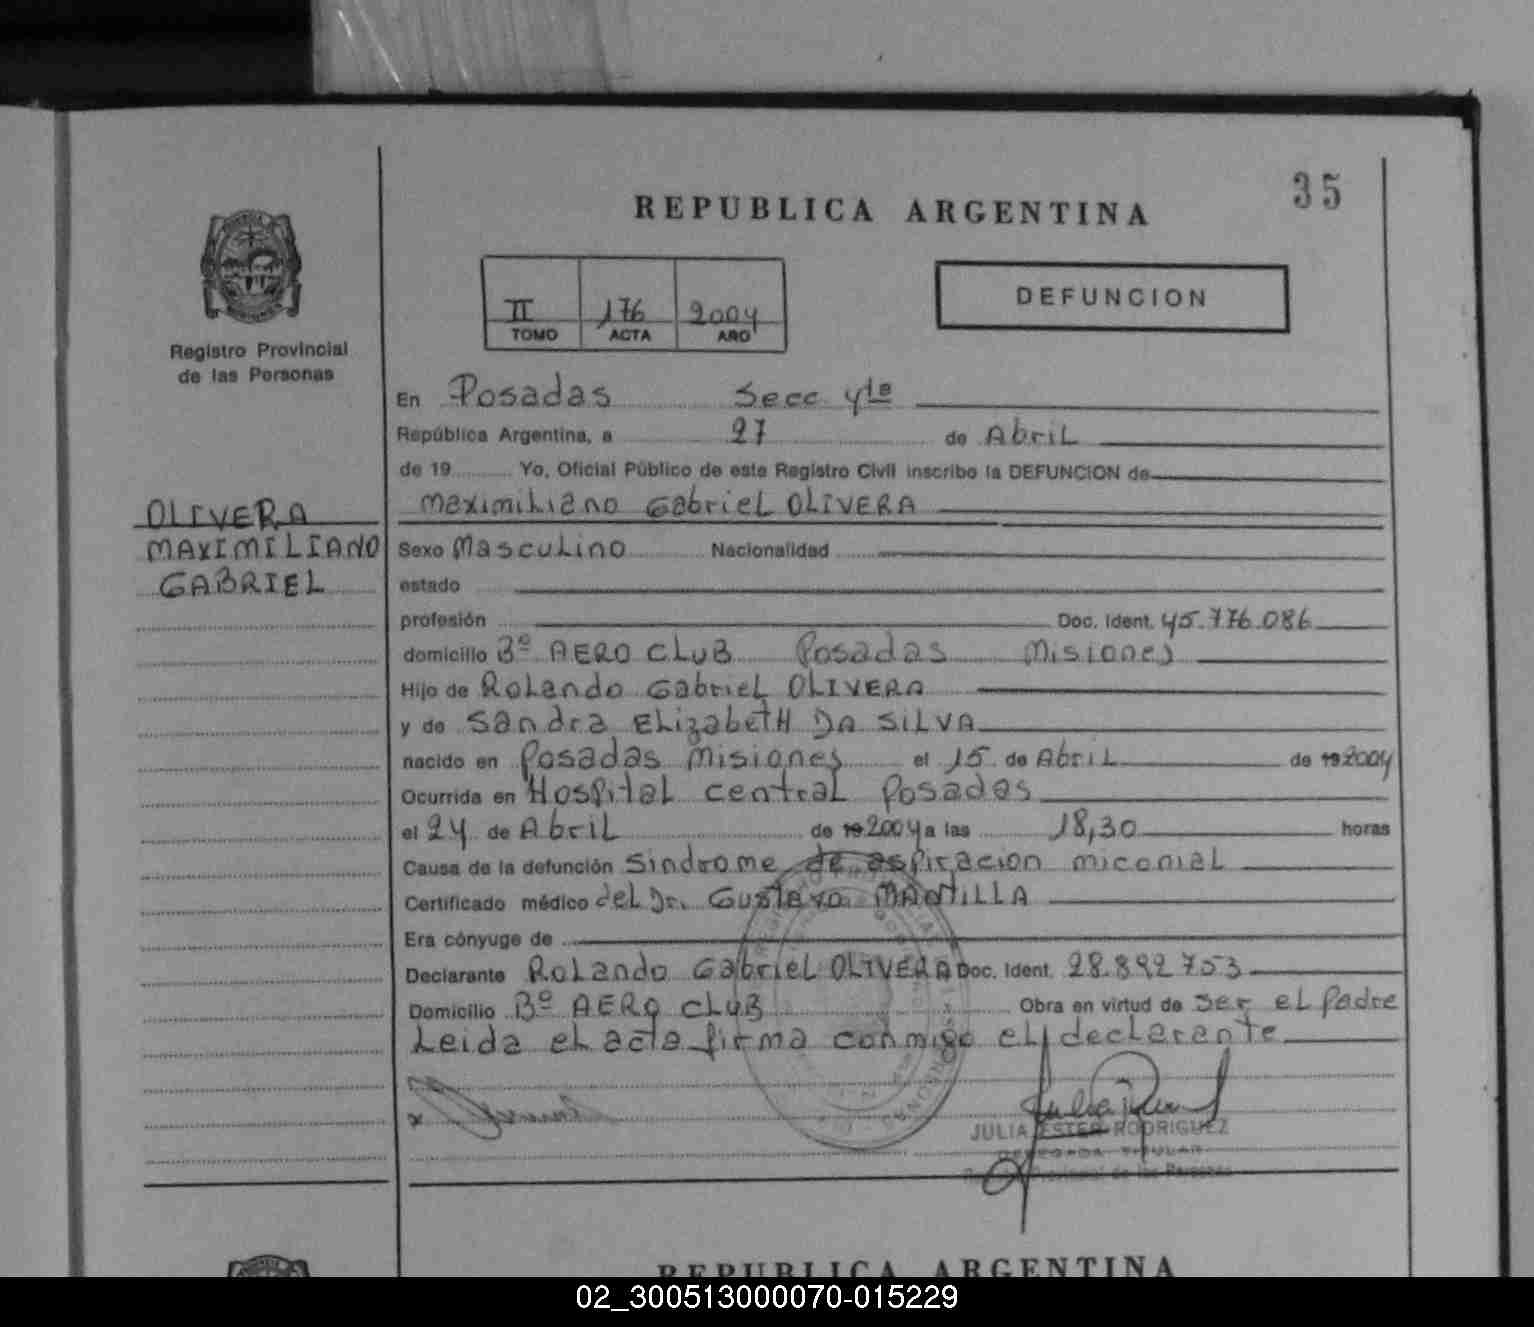 35
REPUBLICA ARGENTINA
DEFUNCION
II 176 2004
TOMO ACTA AÑO
Registro Provincial
de las Personas
OLIVERA
MAXIMILIANO
GABRIEL
En Posadas Secc 4ta
República Argentina, a 27 de Abril
de 19 Yo, Oficial Público de este Registro Civil inscribo la DEFUNCION de
Maximiliano Gabriel OLIVERA
Sexo Masculino Nacionalidad
estado
profesión Doc. Ident. 45.776.086
domicilio Bº AERO CLUB Posadas Misiones
Hijo de Rolando Gabriel OLIVERA
y de Sandra Elizabeth DA SILVA
nacido en Posadas Misiones el 15 de Abril de 19 2004
Ocurrida en Hospital central Posadas
el 24 de Abril de 19 2004 a las 18,30 horas
Causa de la defunción Sindrome de aspiracion miconial
Certificado médico del Dr. Gustavo MANTILLA
Era cónyuge de
Declarante Rolando Gabriel OLIVERA Doc. Ident. 28.892.753
Domicilio Bº AERO CLUB Obra en virtud de ser el padre
Leida el acta firma conmigo el declarante
JULIA ESTER RODRIGUEZ
DELEGADA TITULAR
Provincial de las Personas
REPUBLICA ARGENTINA
02_300513000070-015229